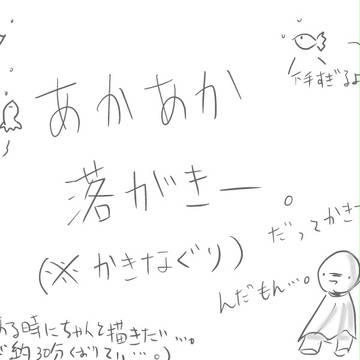 あかあか
落がきー。
(※かきなぐり)
下手すぎるよ
だってかきー
んだもん…。
ある時にちゃんと描きたい…。
約30分くらいでい…。)